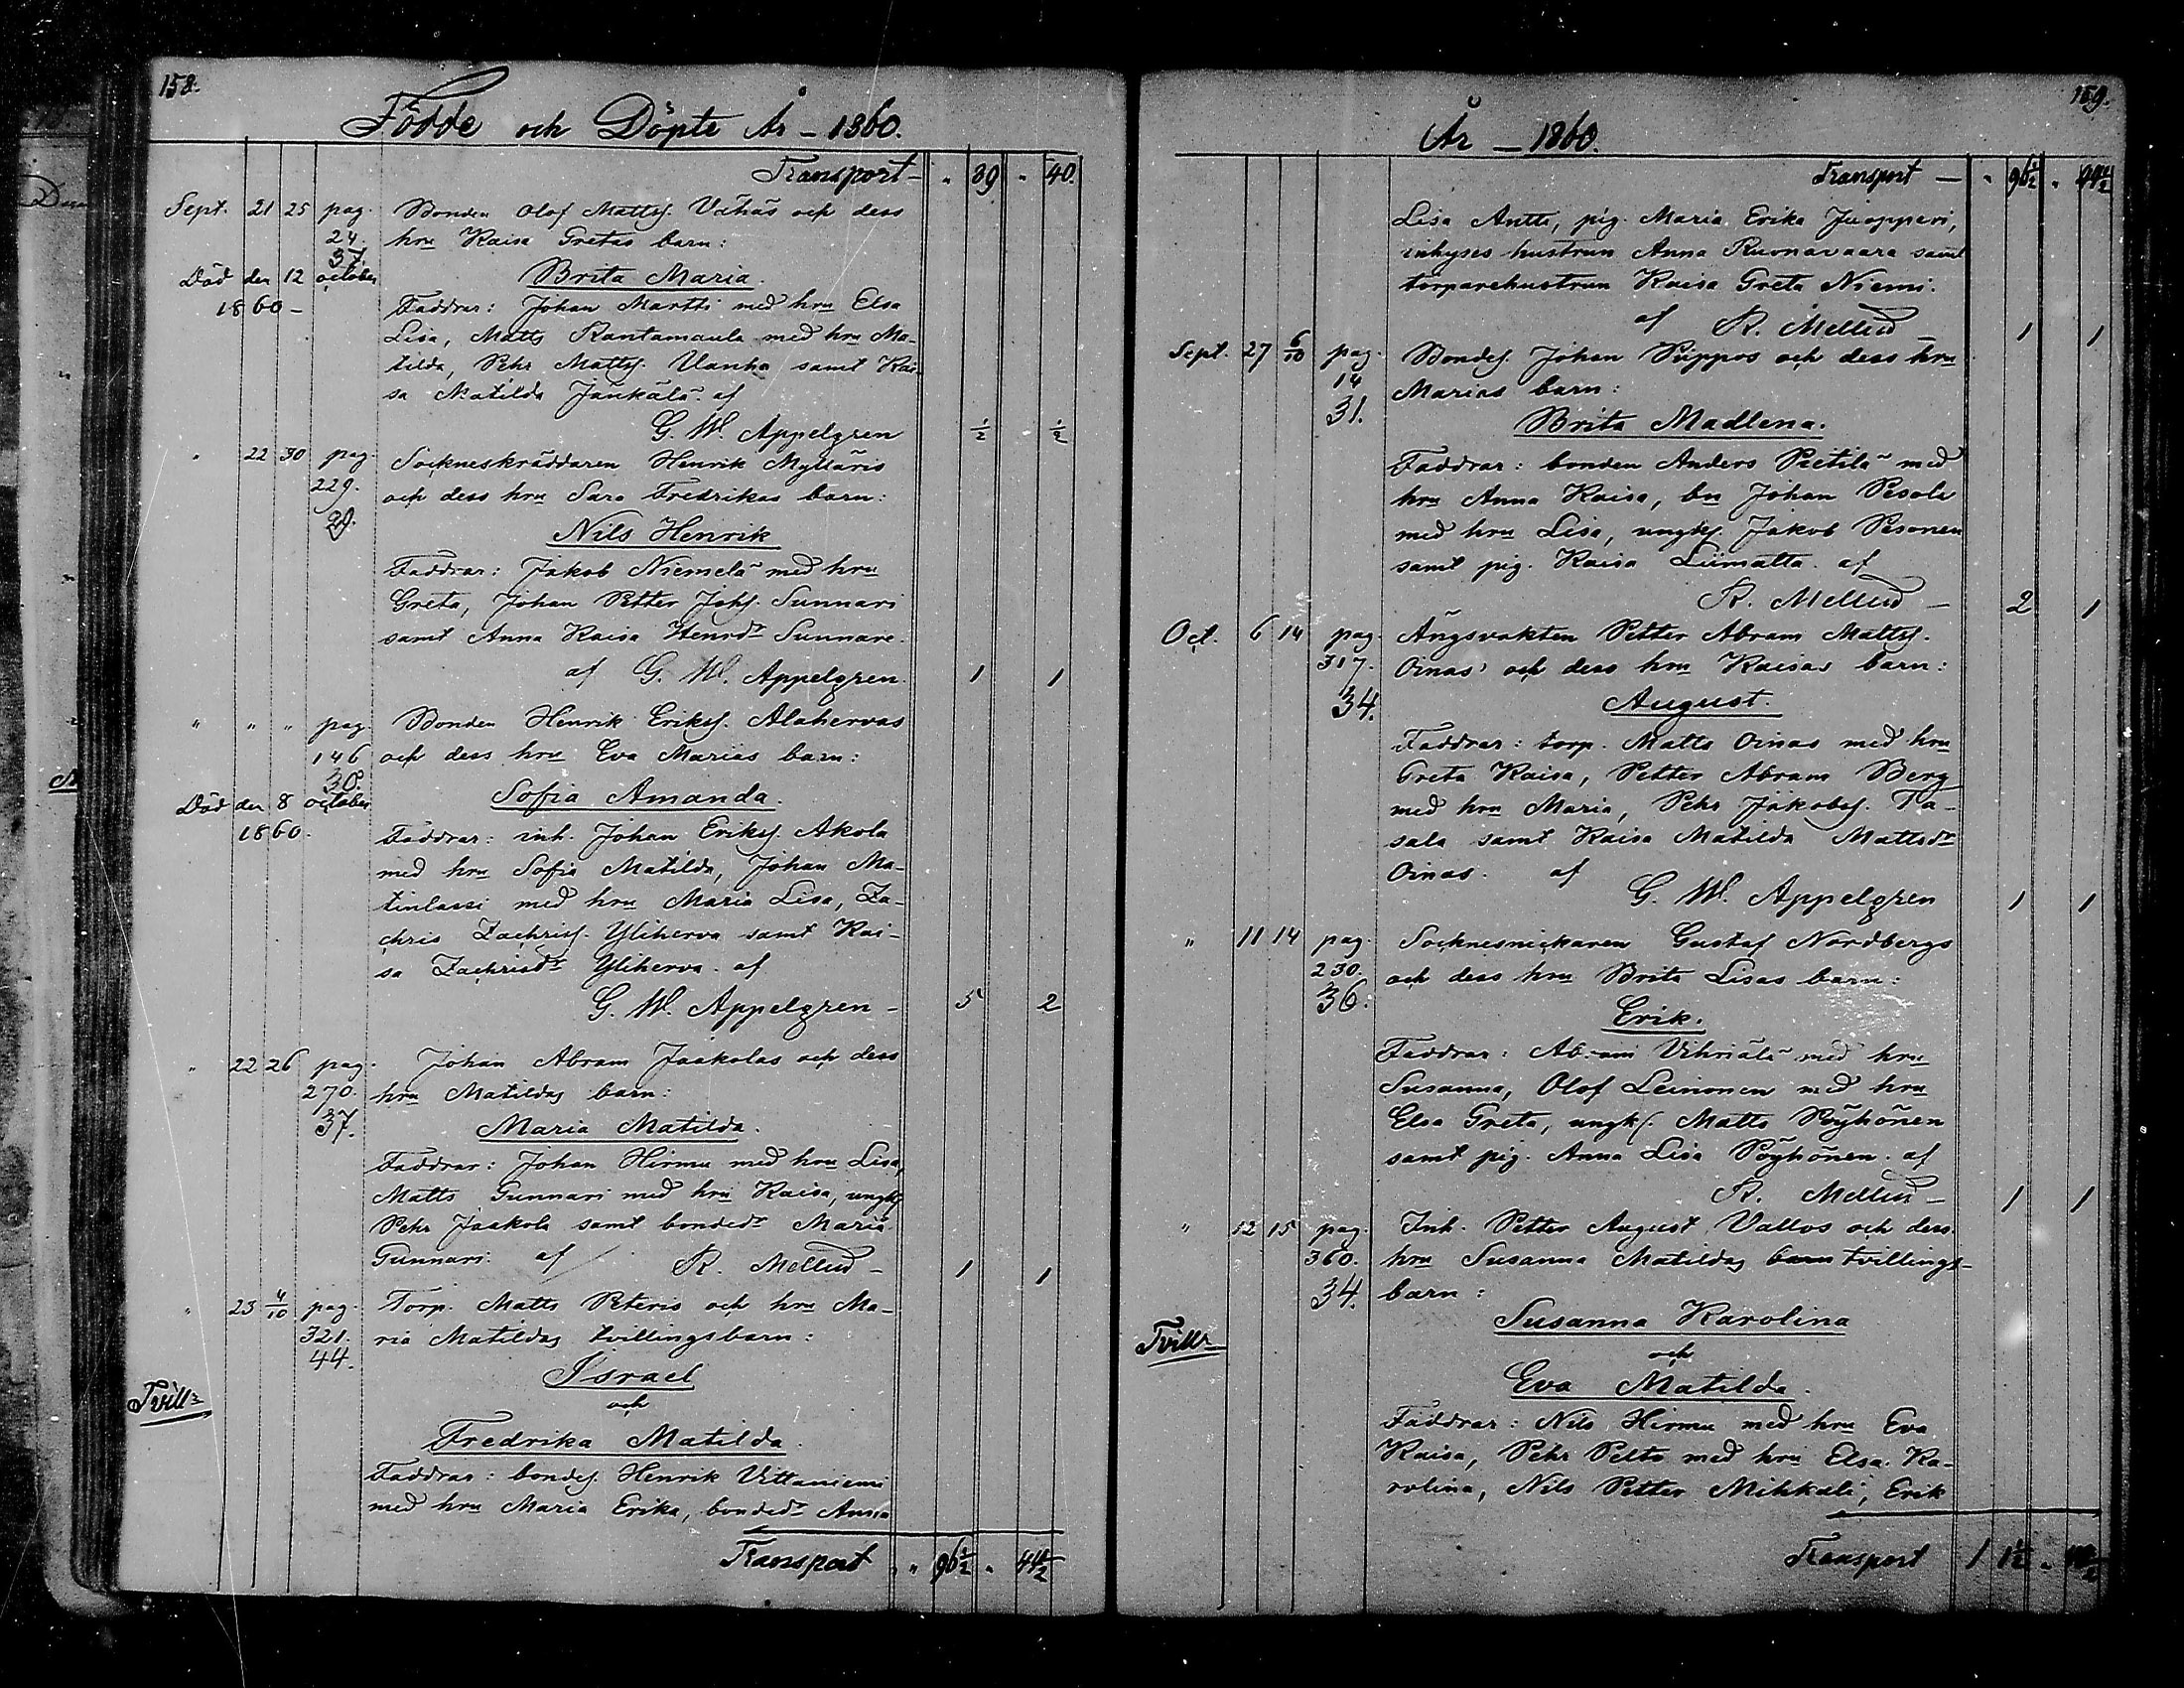 158.
Födde och Döpte År - 1860.
Transport - " 39 " 40.
Sept. 21 25 pag. Bonden Olof Mattsf. Vähäs och dess
24. hru Kaisa Gretas barn:
37.
Död den 12 october Brita Maria.
1860 - Faddrar: Johan Martti med hru Elsa
Lisa, Matts Rantamaula med hru Ma-
tilda, Pehr Mattsf. Vanha samt Kai-
sa Matilda Jänkälä. af
G. W. Appelgren ½ ½
" 22 30 pag. Sockneskräddaren Henrik Mylläris
229. och dess hru Sara Fredrikas barn:
29.
Nils Henrik
Faddrar: Jakob Niemelä med hru
Greta, Johan Petter Johsf. Sunnari
samt Anna Kaisa Henrdr Sunnare.
af G. W. Appelgren. 1 1
" " " pag. Bonden Henrik Eriksf. Alahervas
146 och dess hru Eva Marias barn:
30.
Död den 8 october Sofia Amanda.
1860. Faddrar: inh. Johan Eriksf. Akola
med hru Sofia Matilda, Johan Ma-
tinlassi med hru Maria Lisa, Za-
chris Zachrisf. Yliherva samt Kai-
sa Zachrisdr Yliherva. af
G. W. Appelgren - 5 2
" 22 26 pag. Johan Abram Jaakolas och dess
270. hru Matildas barn:
37.
Maria Matilda.
Faddrar: Johan Hirmu med hru Lisa,
Matts Gunnari med hru Kaisa, ungk.
Pehr Jaakola samt bondedr Maria
Gunnari. af R. Mellud - 1 1
" 23 4/10 pag. Torp. Matts Peteris och hru Ma-
321. ria Matildas tvillingsbarn:
44.
Israel
Tvillr och
Fredrika Matilda.
Faddrar: bondes. Henrik Vittaniemi
med hru Maria Erika, bondedr Anna
Transport " 96½ " 44½
159.
År - 1860.
Transport - " 96½ " 44½
Lisa Antti, pig. Maria Erika Juopperi,
inhyses hustrun Anna Ruonavaara samt
torparehustrun Kaisa Greta Niemi.
af R. Mellud - 1 1
Sept. 27 6/10 pag. Bondes. Johan Piippos och dess hru
14 Marias barn:
31.
Brita Madlena.
Faddrar: bonden Anders Pietilä med
hru Anna Kaisa, bn Johan Pesola
med hru Lisa, ungkf. Jakob Pesonen
samt pig. Kaisa Liimatta. af
R. Mellud - 2 1
Oct. 6 14 pag. Ängsvakten Petter Abram Mattsf.
317. Oinas' och dess hru Kaisas barn:
34.
August.
Faddrar: torp. Matts Oinas med hru
Greta Kaisa, Petter Abram Berg
med hru Maria, Pehr Jakobsf. Ta-
sala samt Kaisa Matilda Mattsdr
Oinas. af
G. W. Appelgren 1 1
" 11 14 pag. Socknesnickaren Gustaf Nordbergs
230. och dess hru Brita Lisas barn:
36.
Erik.
Faddrar: Abram Vihriälä med hru
Susanna, Olof Leinonen med hru
Elsa Greta, ungk. Matts Pöyhönen
samt pig. Anna Lisa Pöyhönen. af
R. Mellud - 1 1
" 12 15 pag. Inh. Petter August Vallos och dess
360. hru Susanna Matildas barn tvillings-
34. barn:
Susanna Karolina
Tvillr och
Eva Matilda.
Faddrar: Nils Hirmu med hru Eva
Kaisa, Pehr Pelto med hru Elsa Ka-
rolina, Nils Petter Mihkali, Erik
Transport 1 1½ "